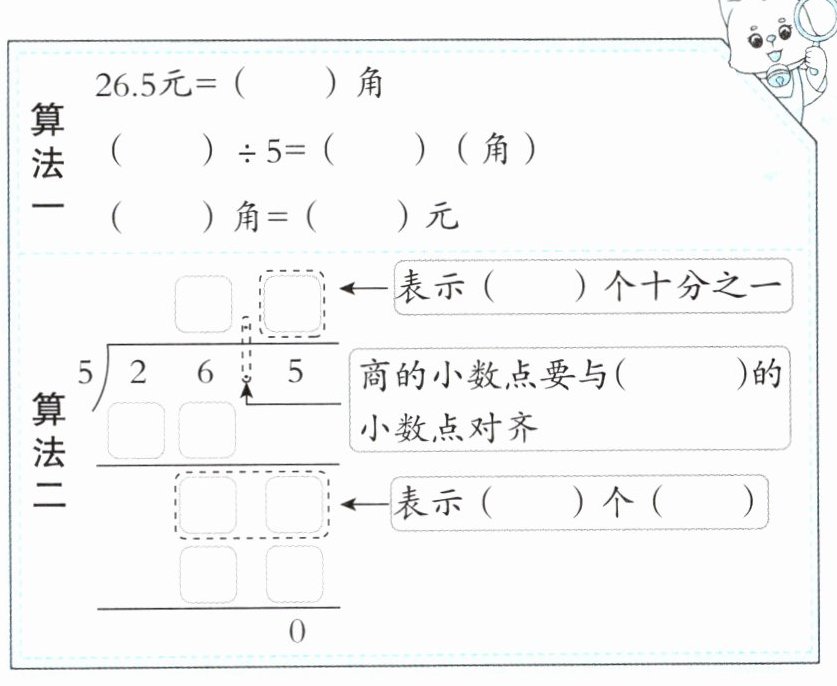 算法一
26.5元=（  ）角
（  ）÷5=（  ）（角）
（  ）角=（  ）元
算法二
表示（  ）个十分之一
5 2 6.5
商的小数点要与(  )的
小数点对齐
表示（  ）个（  ）
0